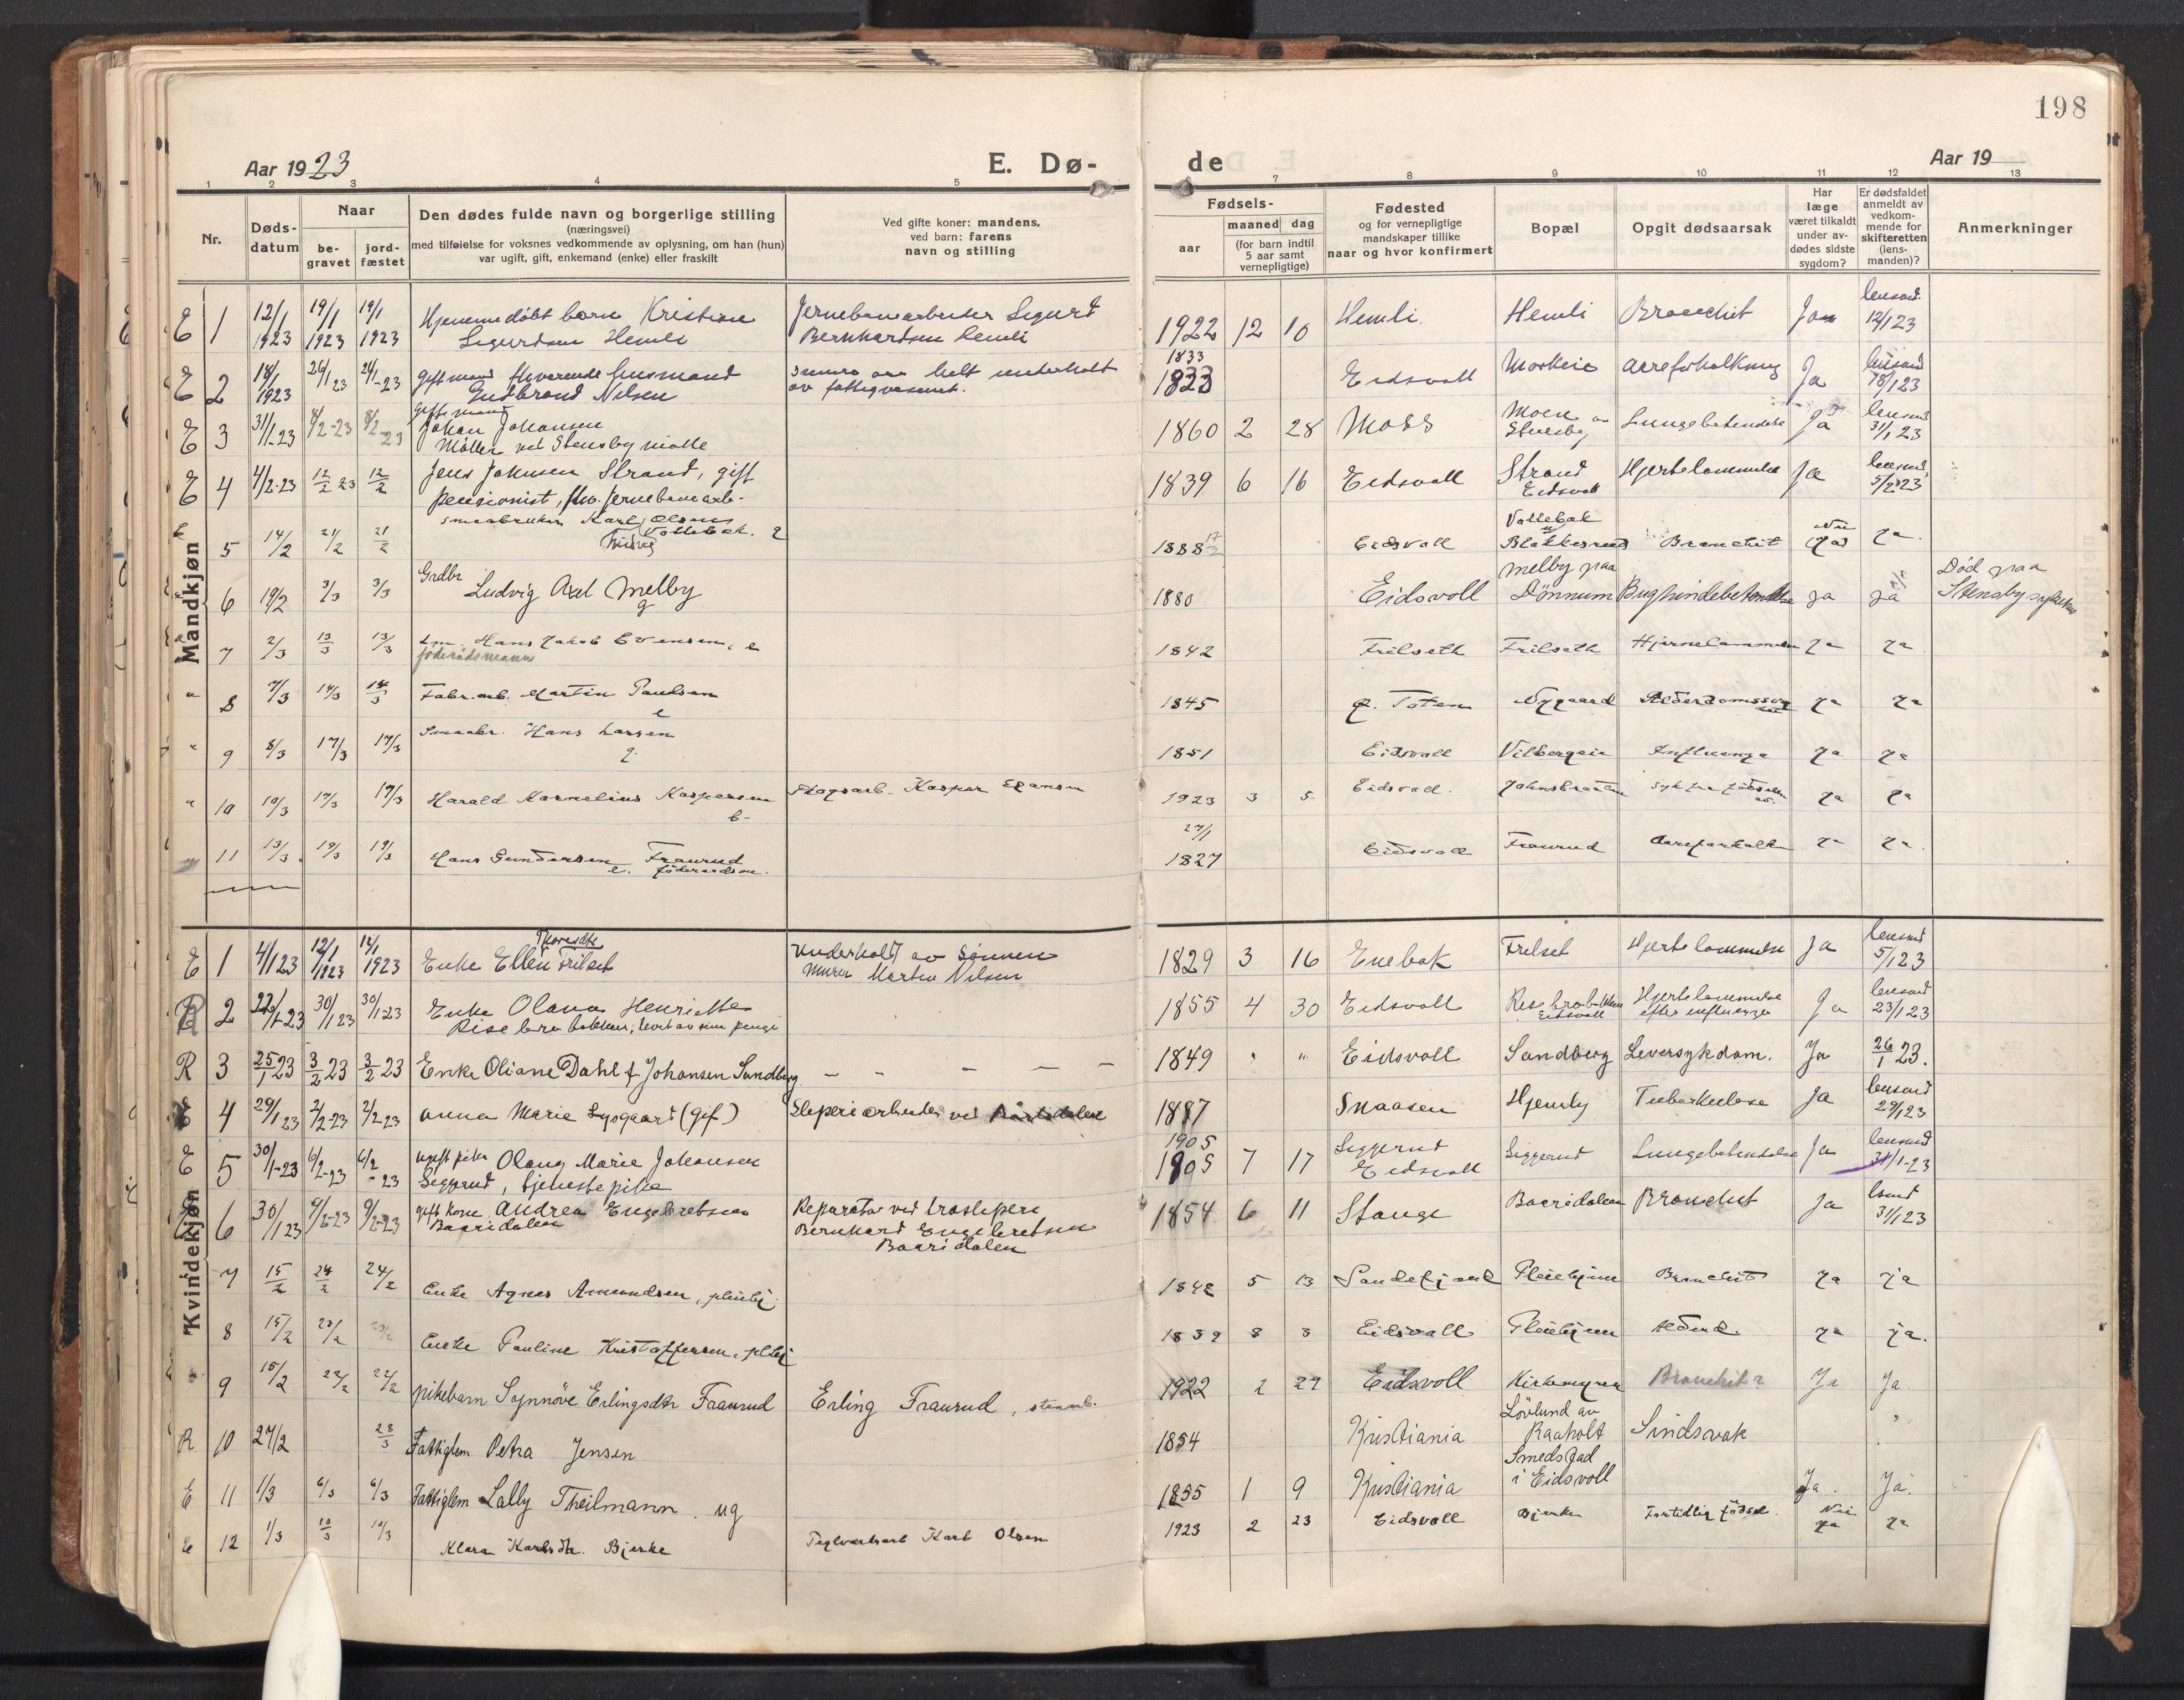 198
Aar 1923
E. Dø-
de
Aar 19
1 2 3 4 5 6 7 8 9 10 11 12 13
Nr.
Døds-
datum
Naar
be-
gravet
jord-
fæstet
Den dødes fulde navn og borgerlige stilling
(næringsvei)
med tilføielse for voksnes vedkommende av oplysning, om han (hun)
var ugift, gift, enkemand (enke) eller fraskilt
Ved gifte koner: mandens,
ved barn: farens
navn og stilling
Fødsels-
aar
maaned dag
(for barn indtil
5 aar samt
vernepligtige)
Fødested
og for vernepligtige
mandskaper tillike
naar og hvor konfirmert
Bopæl
Opgit dødsaarsak
Har
læge
været tilkaldt
under av-
dødes sidste
sygdom?
Er dødsfaldet
anmeldt av
vedkom-
mende for
skifteretten
(lens-
manden)?
Anmerkninger
Mandkjøn
E 1 12/1 1923 19/1 1923 19/1 1923 Hjemmedøbt barn Kristian
Sigurdsen Hemli
Jernebanearbeider Sigurd
Bernhardsen Hemli
1922 12 10 Hemli Hemli Bronchit Ja lensmd. 12/1 23
E 2 18/1 1923 26/1 23 24/1-23 Gift mand fhv
Gudbrand Nilsen
helt underholdt
av fattigvæsenet.
1833
1823 Eidsvoll Aareforkalkning Ja lensmd 18/1 23
E 3 31/1-23 8/2-23 8/2-23 Gift mand
Johan Johansen
Møller ved Stensby mølle
1860 2 28 Moss Moen
Stensby Lungebetendelse Ja lensmd 31/1 23
E 4 4/2-23 12/2 23 12/2 Jens Johnsen Strand, gift
pensionist, fhv. jernebanearb.
1839 6 16 Eidsvoll Strand
Eidsvoll Hjertelammelse Ja lensmd. 5/2 23
E 5 14/2 21/2 21/2 smaabruker Karl Olsen
Vollebæk. g
1888 17/2 Eidsvoll Vollebæk
Blakkesrud Bronchit Nei Ja.
6 19/2 3/3 3/3 Grdbr
Ludvig Axel Melby
g
1880 Eidsvoll Melby paa
Dønnum Bughindebetendelse ja ja Død paa
Stensby sykehus
7 2/3 13/3 13/3 Em. Hans Jakob Evensen, e
føderådsmann
1842 Frilseth Frilseth Hjernelammelse Ja Ja
" 8 7/3 14/3 14/3 Fabr.arb. Martin Paulsen
e
1845 Ø. Toten Nygaard Alderdomssvag Ja Ja
" 9 8/3 17/3 17/3 Smaabr. Hans Larsen
g.
1851 Eidsvoll Vilbergeie Influenza Ja Ja
" 10 10/3 17/3 17/3 Harald Kornelius Kaspersen
b.
Skogsarb. Kaspar
1923 3 5 Eidsvoll. Johnsbraaten Syk fra fødselen av. Ja Ja
11 13/3 19/3 19/3 Hans Gundersen Fraurud
e. føderaadsm.
27/1
1827 Eidsvoll Fraurud Aareforkalk Ja Ja.
Kvindekjøn
E 1 4/1 23 12/1 1923 12/1 1923 Thorsdtr
Enke Ellen Frilset
Underholdt av sønnen
murer Martin Nilsen
1829 3 16 Enebak Frilset Hjertelammelse Ja lensmd 5/1 23
R 2 22/1-23 30/1 23 30/1-23 Enke Olava Henriette
Risebrobakken, levet av sine penge
1855 4 30 Eidsvoll Risebrobakken
Eidsvoll Hjertelammelse
efter influenza Ja lensmd 23/1 23
R 3 25/1 23 3/2 23 3/2 23 Enke Oliane Dahl f. Johansen Sandberg
– – – – –
1849 " " Eidsvoll Sandberg Leversykdom. Ja 26/1 23.
E 4 29/1 23 2/2-23 2/2-23 Anna Marie Lysgaard (gif)
Sliperiarbeider ved Bårlidalen
1887 Snaasen Hjemly Tuberkulose Ja lensmd 29/1 23
E 5 30/1-23 6/2-23 6/2-23 ugift pike Olaug Marie Johansen
Seggerud, tjenestepike
1905
1905 7 17 Seggerud
Eidsvoll Seggerud Lungebetendelse Ja lensmd 31/1-23
E 6 30/1 23 9/2-23 9/2-23 gift kone Andrea Engebretsen
Baaridalen
Reparatør ved træsliperi
Bernhard Engebretsen
Baaridalen
1854 6 11 Stange Baaridalen Bronchit Ja lsmd 31/1 23
7 15/2 24/2 24/2 Enke Agnes Amundsen, pleiehj.
1842 5 13 Sandefjord Pleiehjem Bronchit Ja ja
8 15/2 23/2 Enke Pauline Kristoffersen, plhj
1839 8 3 Eidsvoll Pleiehjem Alderd. Ja ja.
9 15/2 22/2 22/2 pikebarn Synnöve Erlingsdtr Fraurud
Erling Fraurud, stenarb.
1922 2 27 Eidsvoll Kirkemyren Bronchit Ja Ja
R 10 27/2 28/3 Fattiglem Petra Jensen
1854 Kristiania Lövlund av
Raaholt Sindsvak "
E 11 1/3 6/3 6/3 Fattiglem Lally Theilmann. ug
1855 1 9 Kristiania Smedstad
i Eidsvoll Ja. Ja.
E 12 1/3 10/3 10/3 Klara Karlsdtr. Bjerke
Teglverksarb Karl Olsen
1923 2 23 Eidsvoll Bjerke Fortidlig fødsel. Nei
Ja Ja